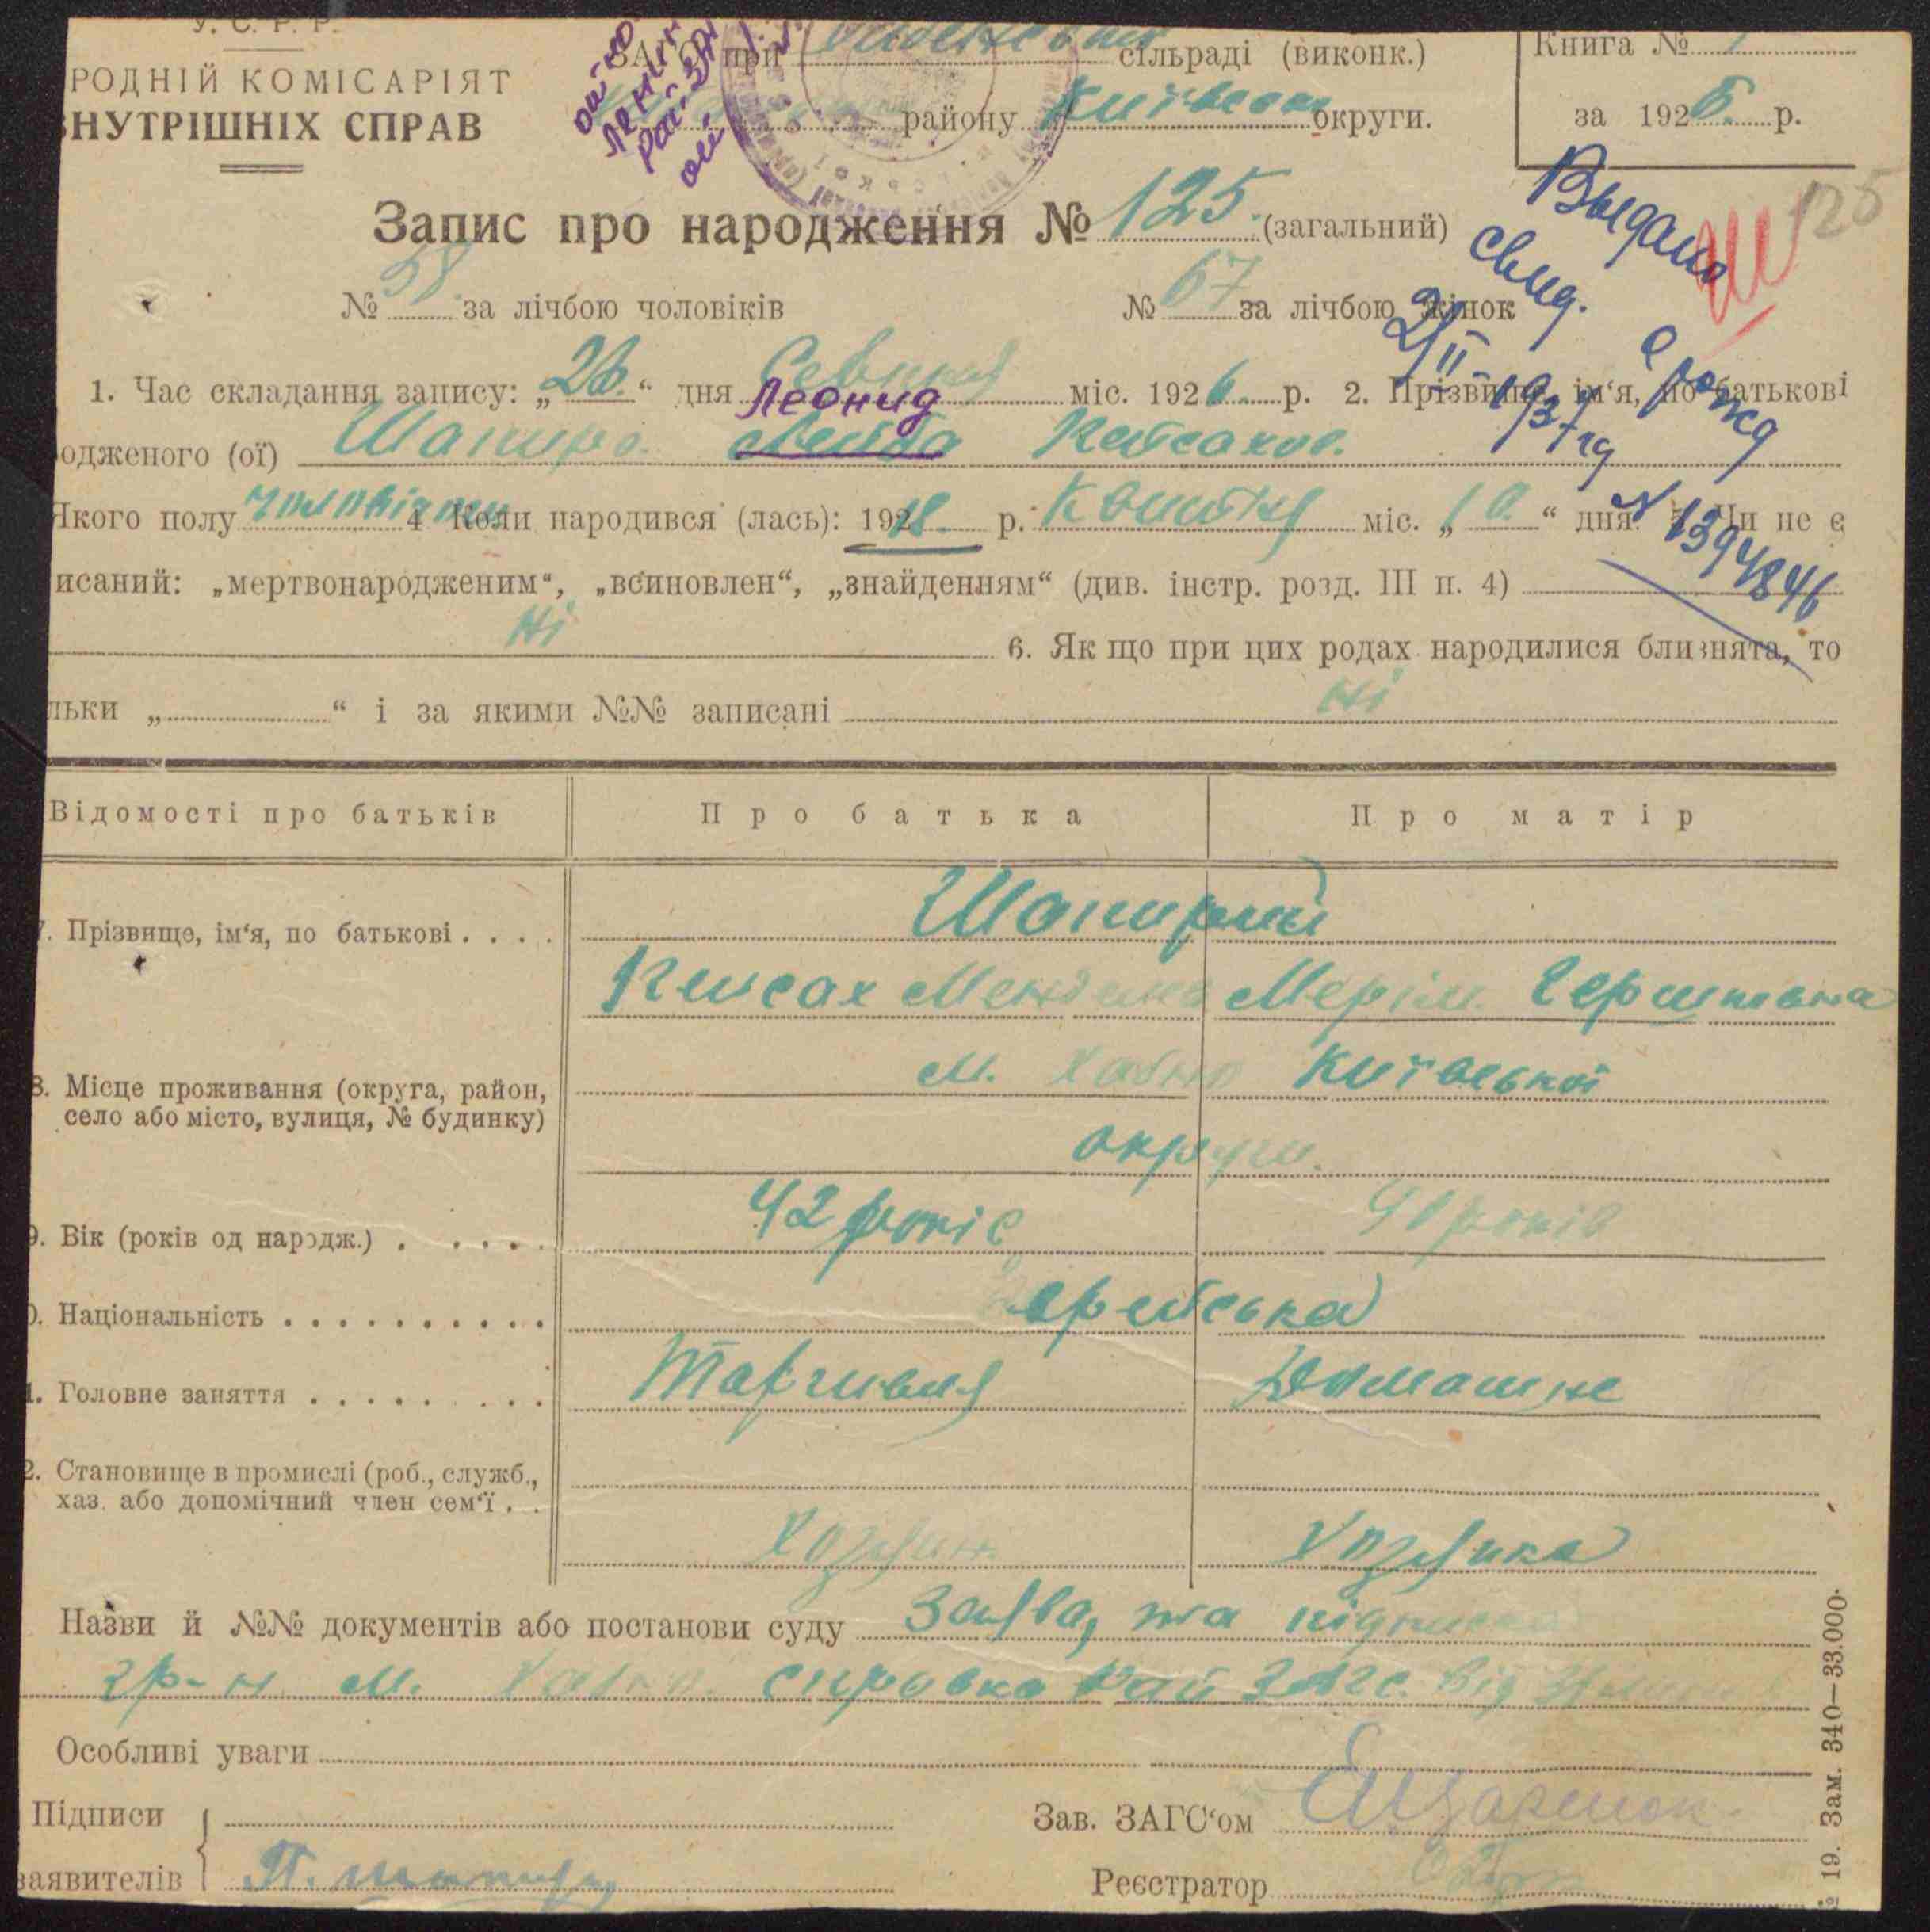 У. С. Р. Р.
РОДНІЙ КОМІСАРІЯТ
ВНУТРІШНІХ СПРАВ
ЗАГС при сільраді (виконк.)
району Київської округи.
Книга № 1
за 1926 р.
Запис про народження № 125. (загальний)
125
Выдано
свид.
о рожд
2/II-1937 г
N 1394846
№ 58 за лічбою чоловіків
№ 67 за лічбою жінок
1. Час складання запису: „26.“ дня Серпня міс. 1926. р. 2. Прізвище, ім‘я, по батькові
Леонид
одженого (ої) Шапиро. Лейба Кейсахов.
Якого полу чоловічого 4 Коли народився (лась): 1918. р. Квітня міс. „10.“ дня 5. Чи не є
исаний: „мертвонародженим“, „всиновлен“, „знайденням“ (див. інстр. розд. III п. 4)
Ні
6. Як що при цих родах народилися близнята, то
льки „ “ і за якими №№ записані Ні
Відомості про батьків Про батька Про матір
Шапирий
7. Прізвище, ім‘я, по батькові . . . .
Кейсах Менделев Мерім Гершковна
8. Місце проживання (округа, район,
село або місто, вулиця, № будинку)
м. Хабно Київської
округи.
9. Вік (років од народж.) . . . . . 42 років 41 років
0. Національність . . . . . . . . . . єврейська
1. Головне заняття . . . . . . . . . Торгивля Домашнє
2. Становище в промислі (роб., служб.,
хаз. або допомічний член сем‘ї . .
Хозяин Хозяика
Назви й №№ документів або постанови суду Заява, та підписка
гр-н м. Хабно. справка Рай ЗАГС. від
Особливі уваги
Підписи
заявителів П. Шапиро
Зав. ЗАГС‘ом
Реєстратор
№ 19. Зам. 340—33.000.